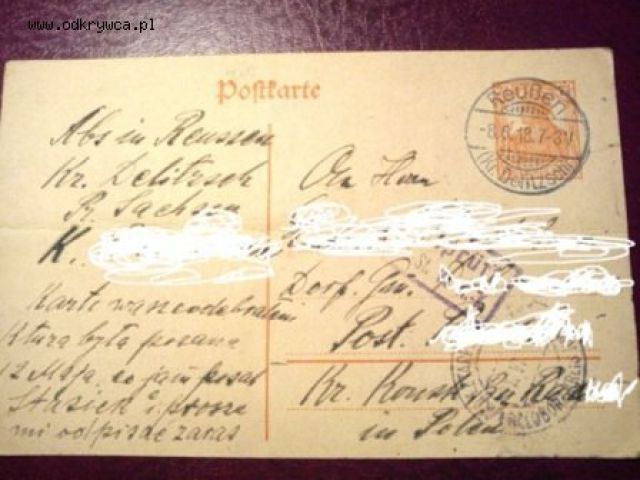 www.odkrywca.pl
Postkarte
Reußen
-8.6.18.7-8V
(Kr. Delitzsch)
Abs in Reussen
Kr. Delitzsch
Pr. Sachsen
K.
Karte wasze odebrałem
Ktura była pisana
12 Maja, co jam pisał
Stasiek i prosze
mi odpisac zaras
An Herrn
Dorf. Gm.
Post.
Kr. Konsk. Gm Rad
in Polen